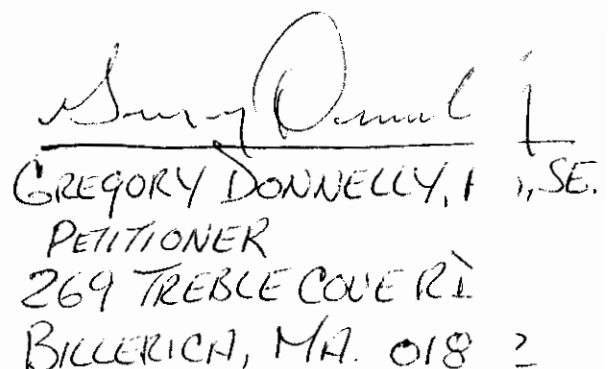 GREGORY DONNELLY, SE.
PETITIONER
269 TREBLE COVE
BILLERICA, MA.